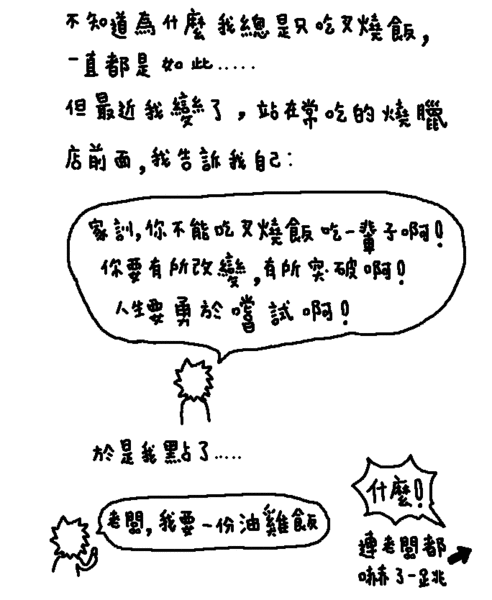 不知道為什麼我總是只吃叉燒飯,
一直都是如此.....
但最近我變了,站在常吃的燒臘
店前面,我告訴我自己:
家訓,你不能吃叉燒飯吃一輩子啊!
你要有所改變,有所突破啊!
人生要勇於嚐試啊!
於是我點了.....
老闆,我要一份油雞飯
什麼!
連老闆都
嚇了一跳